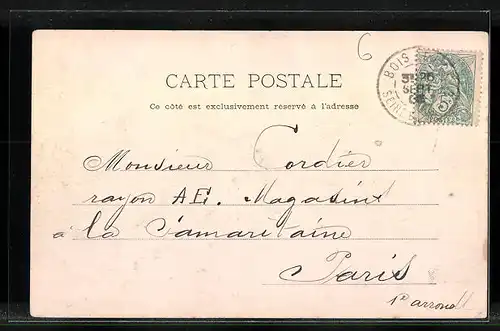 6
BOIS
SEPT
CARTE POSTALE
Ce côté est exclusivement réservé à l'adresse
Monsieur Cordier
rayon AE. Magasins
à la Samaritaine
Paris
1er arrondt